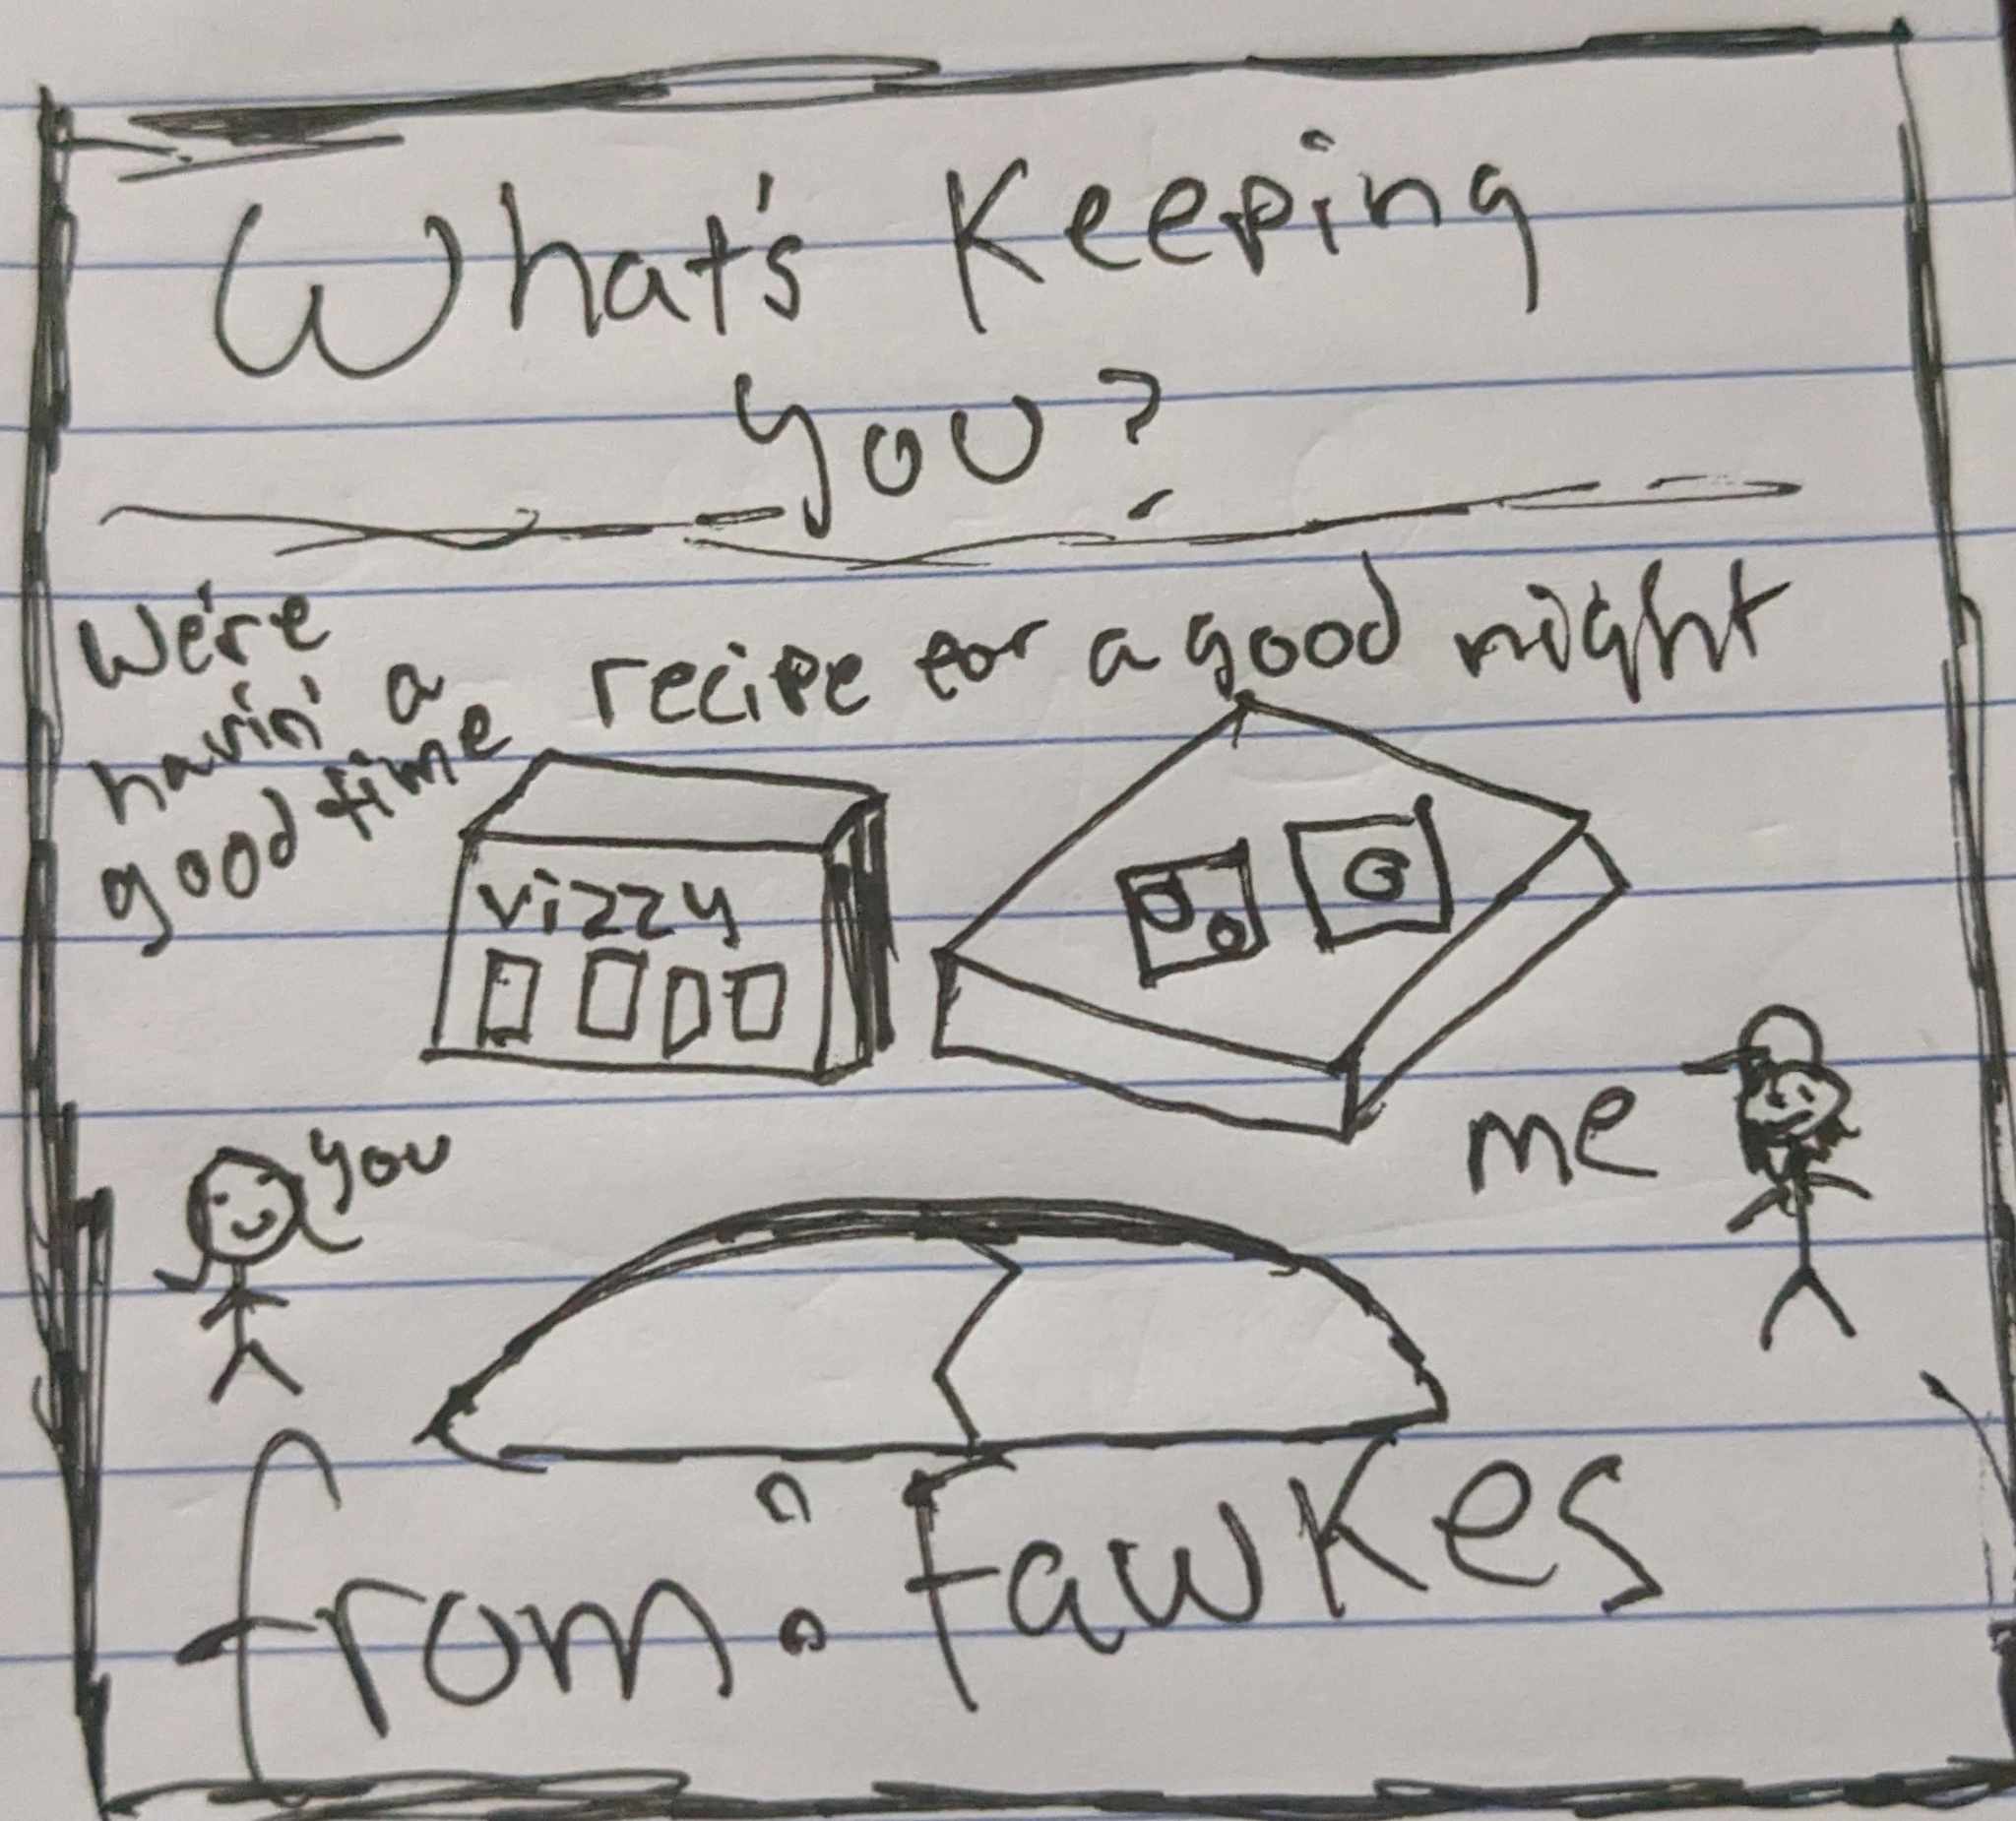 What's Keeping
you?
We're
havin' a
good time
recipe for a good night
vizzy
you
me
from: Fawkes